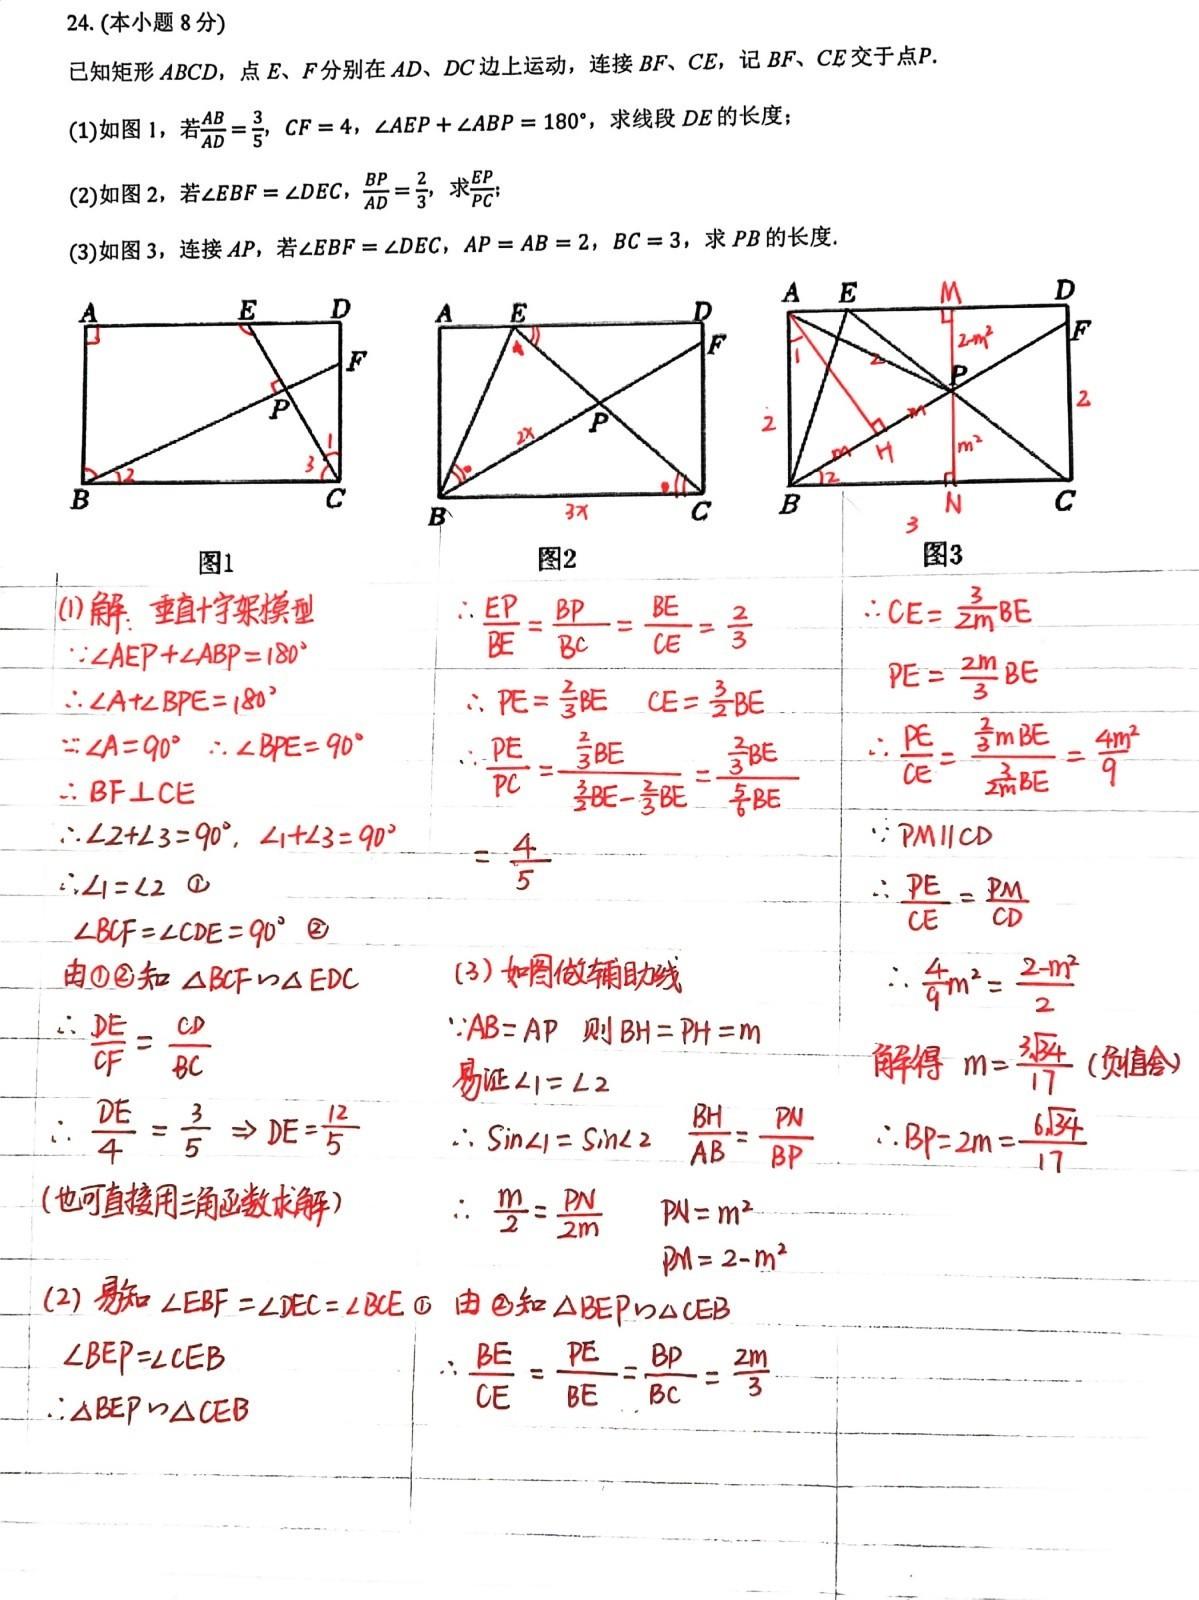 24. (本小题 8 分)
已知矩形 ABCD，点 E、F分别在 AD、DC 边上运动，连接 BF、CE，记 BF、CE 交于点P.
(1)如图 1，若AB/AD=3/5，CF = 4，∠AEP + ∠ABP = 180°，求线段 DE 的长度；
(2)如图 2，若∠EBF = ∠DEC，BP/AD=2/3，求EP/PC；
(3)如图 3，连接 AP，若∠EBF = ∠DEC，AP = AB = 2，BC = 3，求 PB 的长度.
A E D
F
P
1
3
2
B C
图1
A E D
F
P
2x
B C
3x
图2
A E M D
F
1
2-m²
2
P
2
2
m
m
H
m²
2
B N C
3
图3
(1) 解: 垂直十字架模型
∵∠AEP+∠ABP=180°
∴∠A+∠BPE=180°
∵∠A=90° ∴∠BPE=90°
∴BF⊥CE
∴∠2+∠3=90°, ∠1+∠3=90°
∴∠1=∠2 ①
∠BCF=∠CDE=90° ②
由①②知 △BCF∽△EDC
∴ DE/CF = CD/BC
∴ DE/4 = 3/5 ⇒ DE=12/5
(也可直接用三角函数求解)
(2) 易知 ∠EBF=∠DEC=∠BCE ①
∠BEP=∠CEB
∴△BEP∽△CEB
∴ EP/BE = BP/BC = BE/CE = 2/3
∴ PE=2/3BE CE=3/2BE
∴ PE/PC = 2/3BE/(3/2BE-2/3BE) = 2/3BE/(5/6BE)
= 4/5
(3) 如图做辅助线
∵AB=AP 则BH=PH=m
易证∠1=∠2
∴ Sin∠1=Sin∠2 BH/AB = PN/BP
∴ m/2 = PN/2m PN=m²
PM=2-m²
由②知 △BEP∽△CEB
∴ BE/CE = PE/BE = BP/BC = 2m/3
∴CE= 3/2m BE
PE= 2m/3 BE
∴ PE/CE = 2/3mBE/(3/2m BE) = 4m²/9
∵PM∥CD
∴ PE/CE = PM/CD
∴ 4/9m² = 2-m²/2
解得 m= 3√34/17 (负值舍)
∴BP=2m= 6√34/17